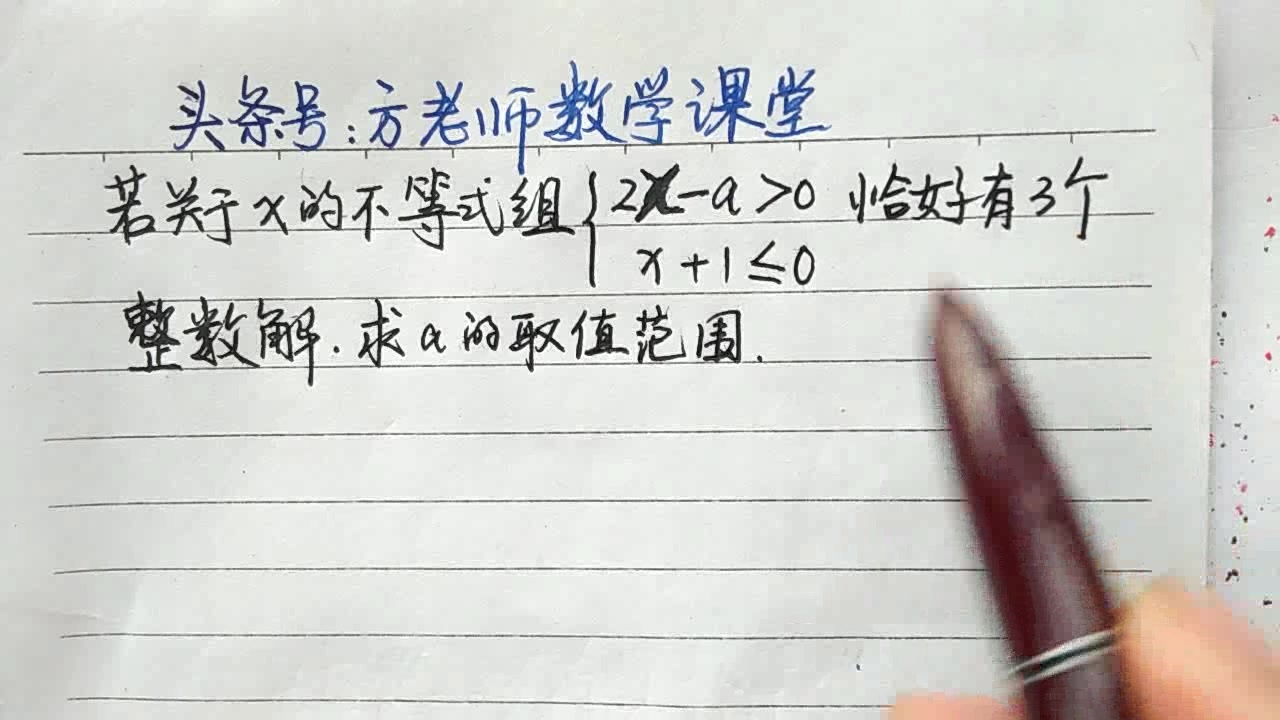 头条号:方老师数学课堂
若关于x的不等式组{2x-a>0 恰好有3个
x+1≤0
整数解.求a的取值范围.